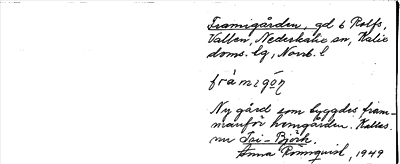 Framigården, gd 6 Rolfs,
Vallen, Nederkalix sn, Kalix
doms. lg, Norrb. l
framigōn
Ny gård som byggdes fram-
manför hemgården. Kallas
nu Toi-Björk.
Anna Rönnqvist, 1949